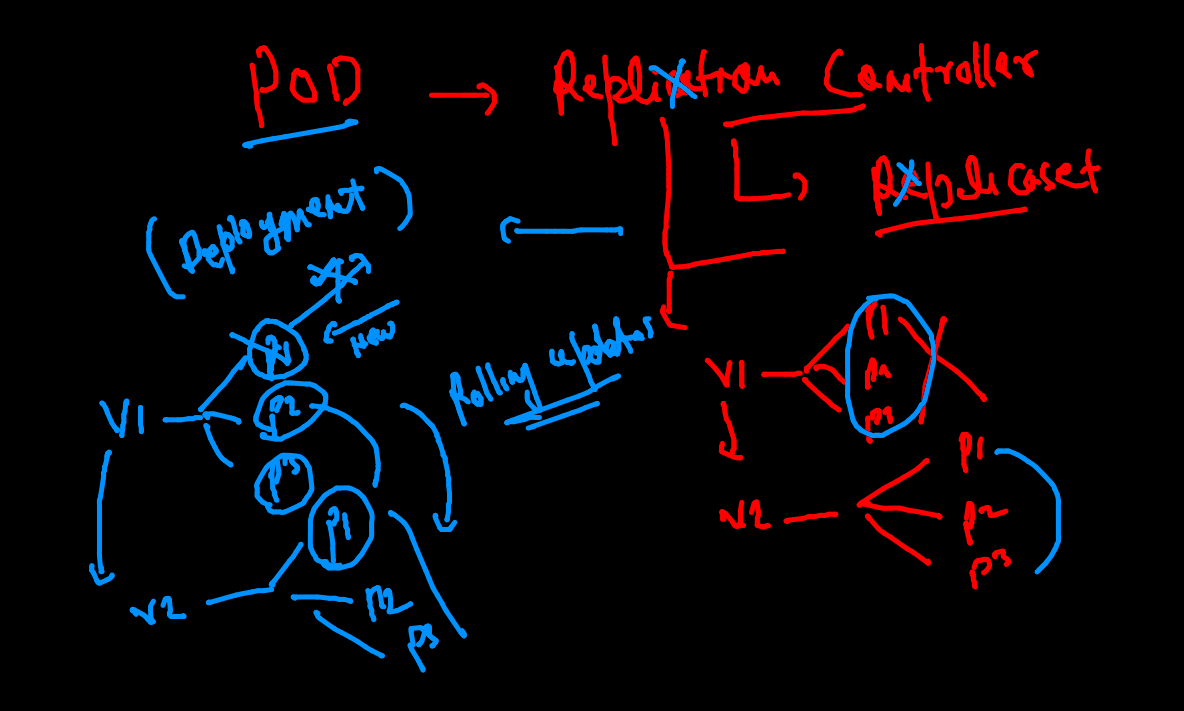 POD → Replication Controller
Replicaset
(Deployment)
New
Rolling updates
V1
P1
P2
P3
P1
V2
P2
P3
V1
P1
P2
P3
V2
P1
P2
P3